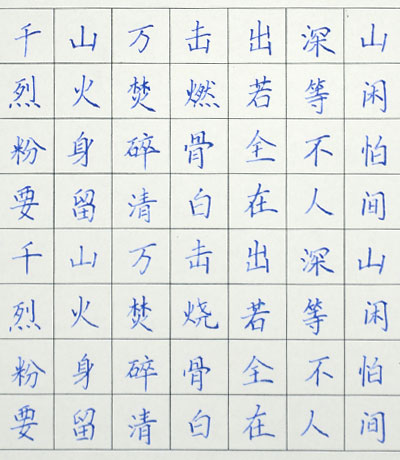 千山万击出深山
烈火焚燃若等闲
粉身碎骨全不怕
要留清白在人间
千山万击出深山
烈火焚烧若等闲
粉身碎骨全不怕
要留清白在人间